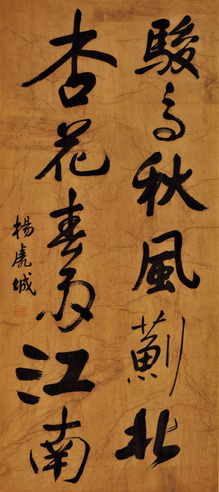 駿馬秋風薊北
杏花春雨江南
楊虎城